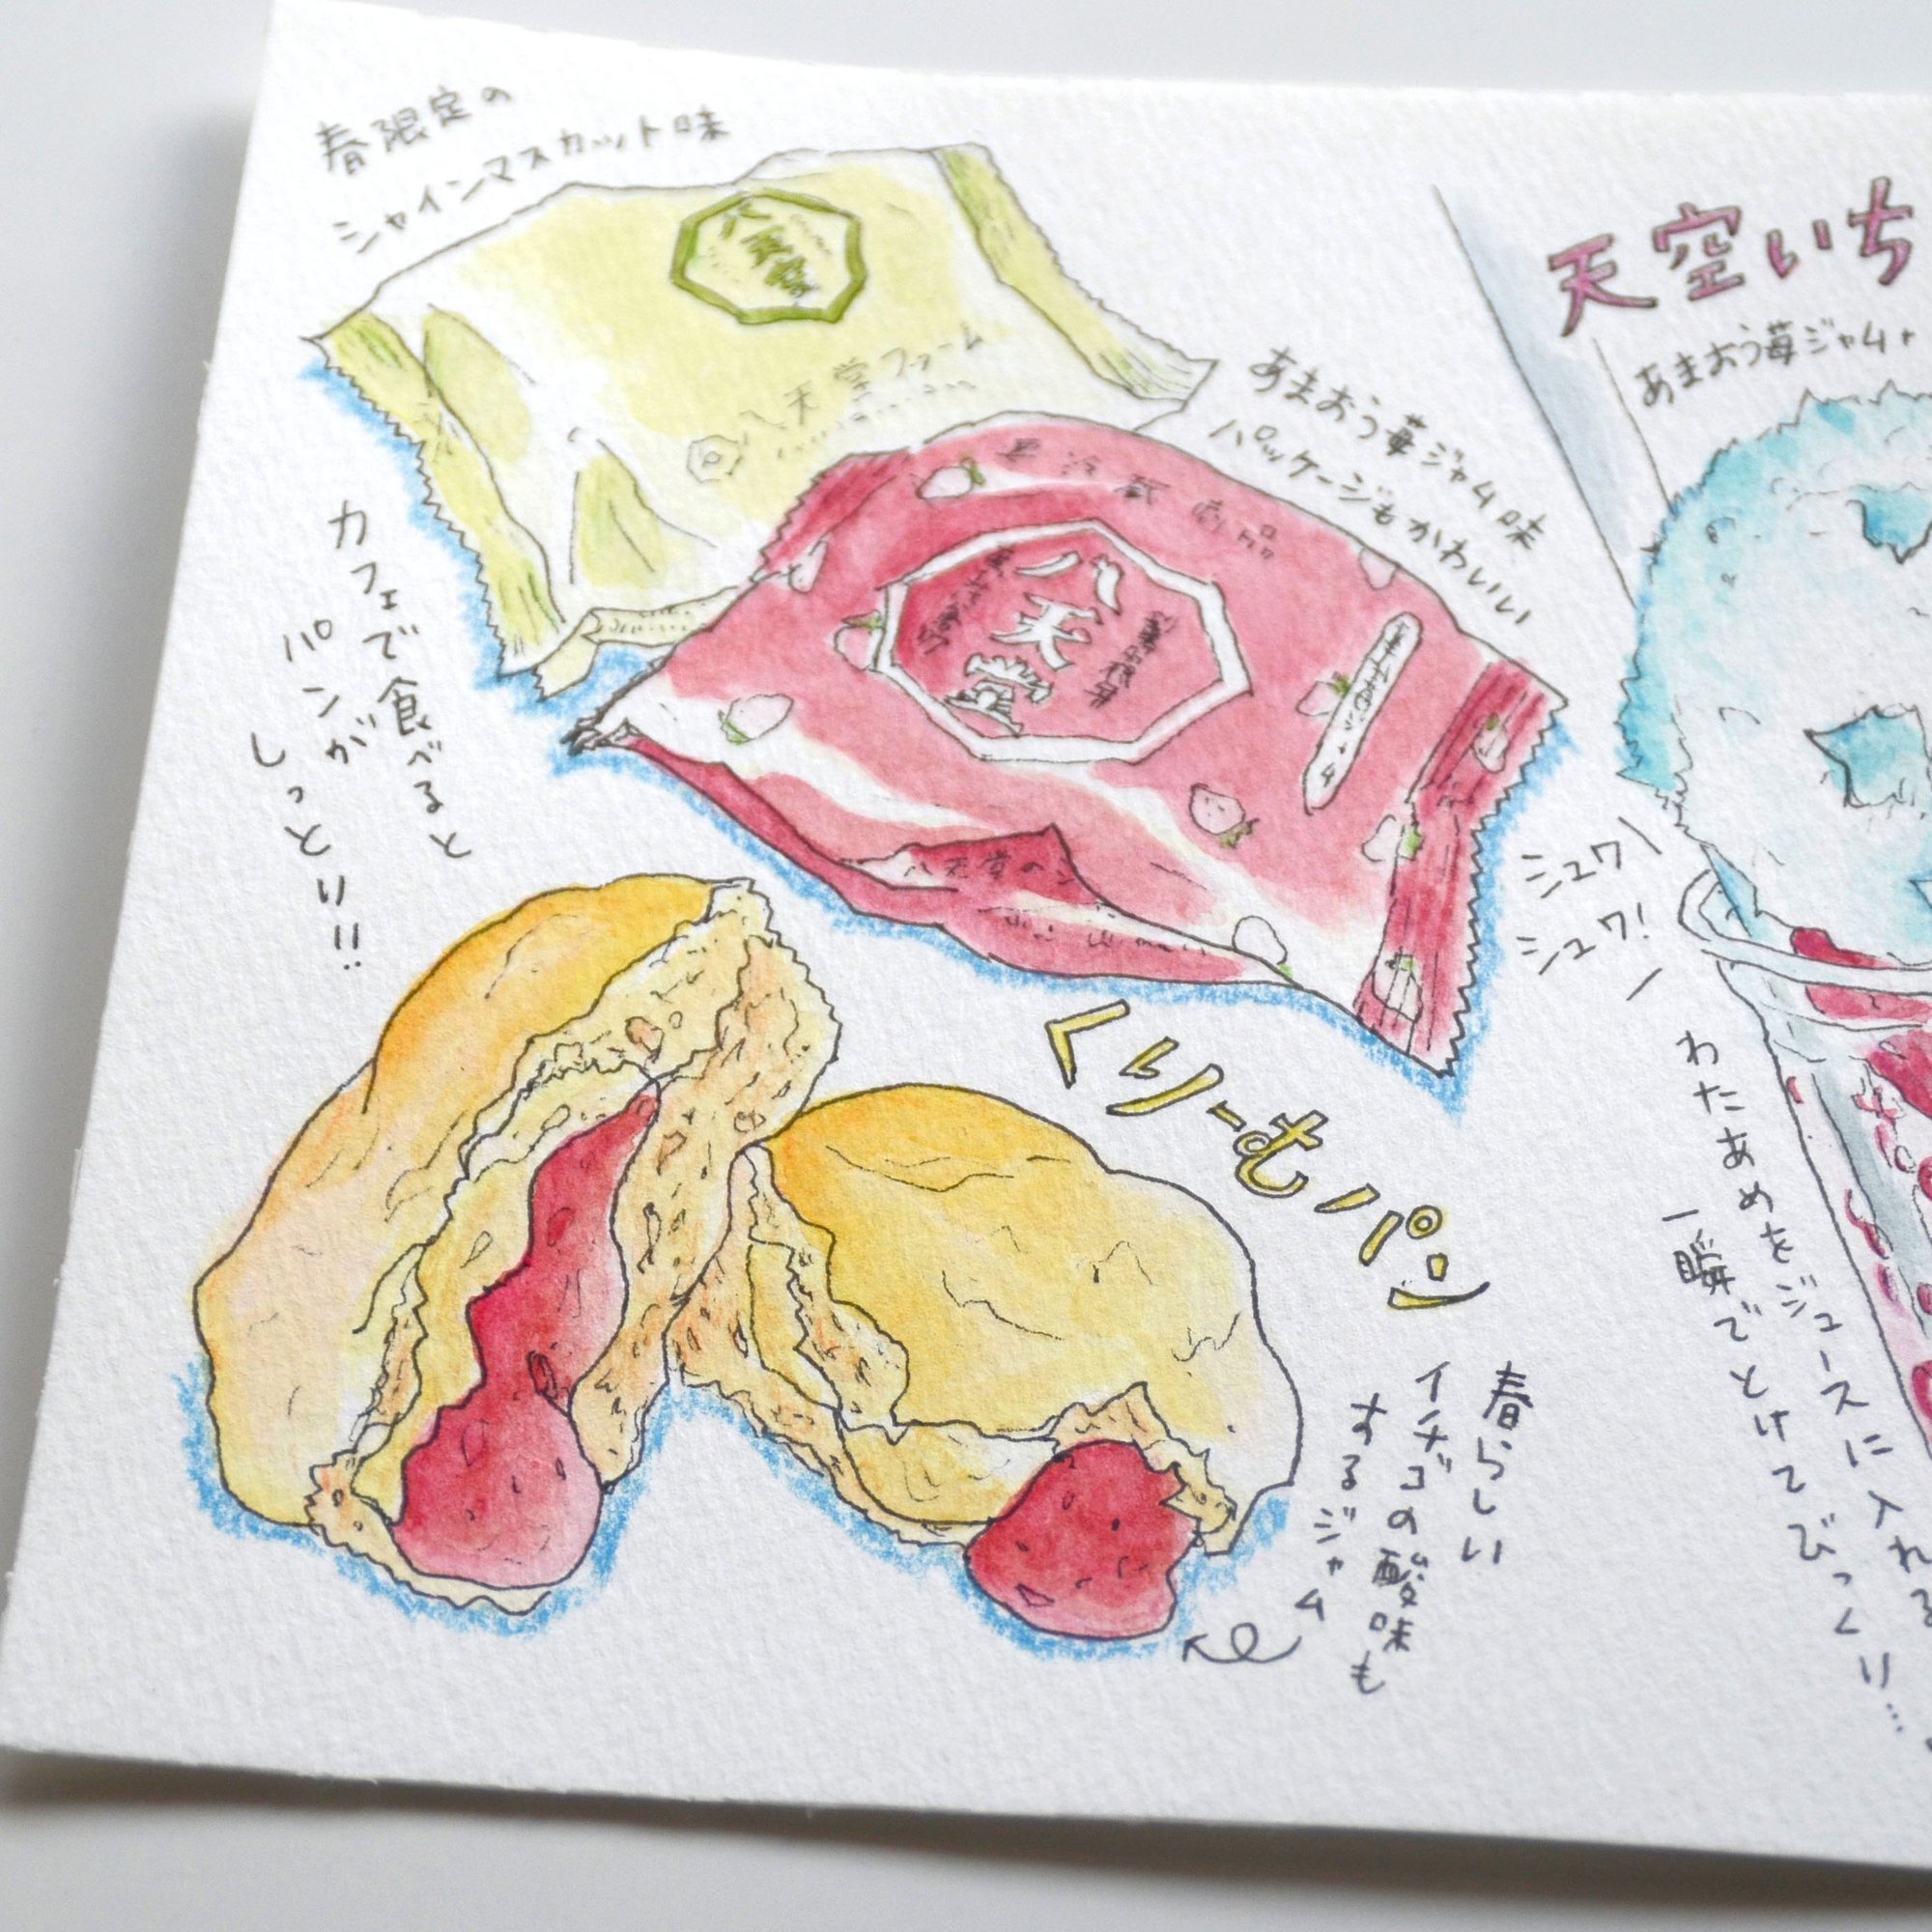 春限定の
シャインマスカット味
八天堂
八天堂ファーム
あまおう苺ジャム味
パッケージもかわいい
要冷蔵商品
八天堂
カフェで食べると
パンが
しっとり!!
くりーむパン
春らしい
イチゴの酸味も
するジャム
天空いち
あまおう苺ジャム+
シュワ
シュワ!
わたあめをジュースに入れる
一瞬でとけてびっくり…